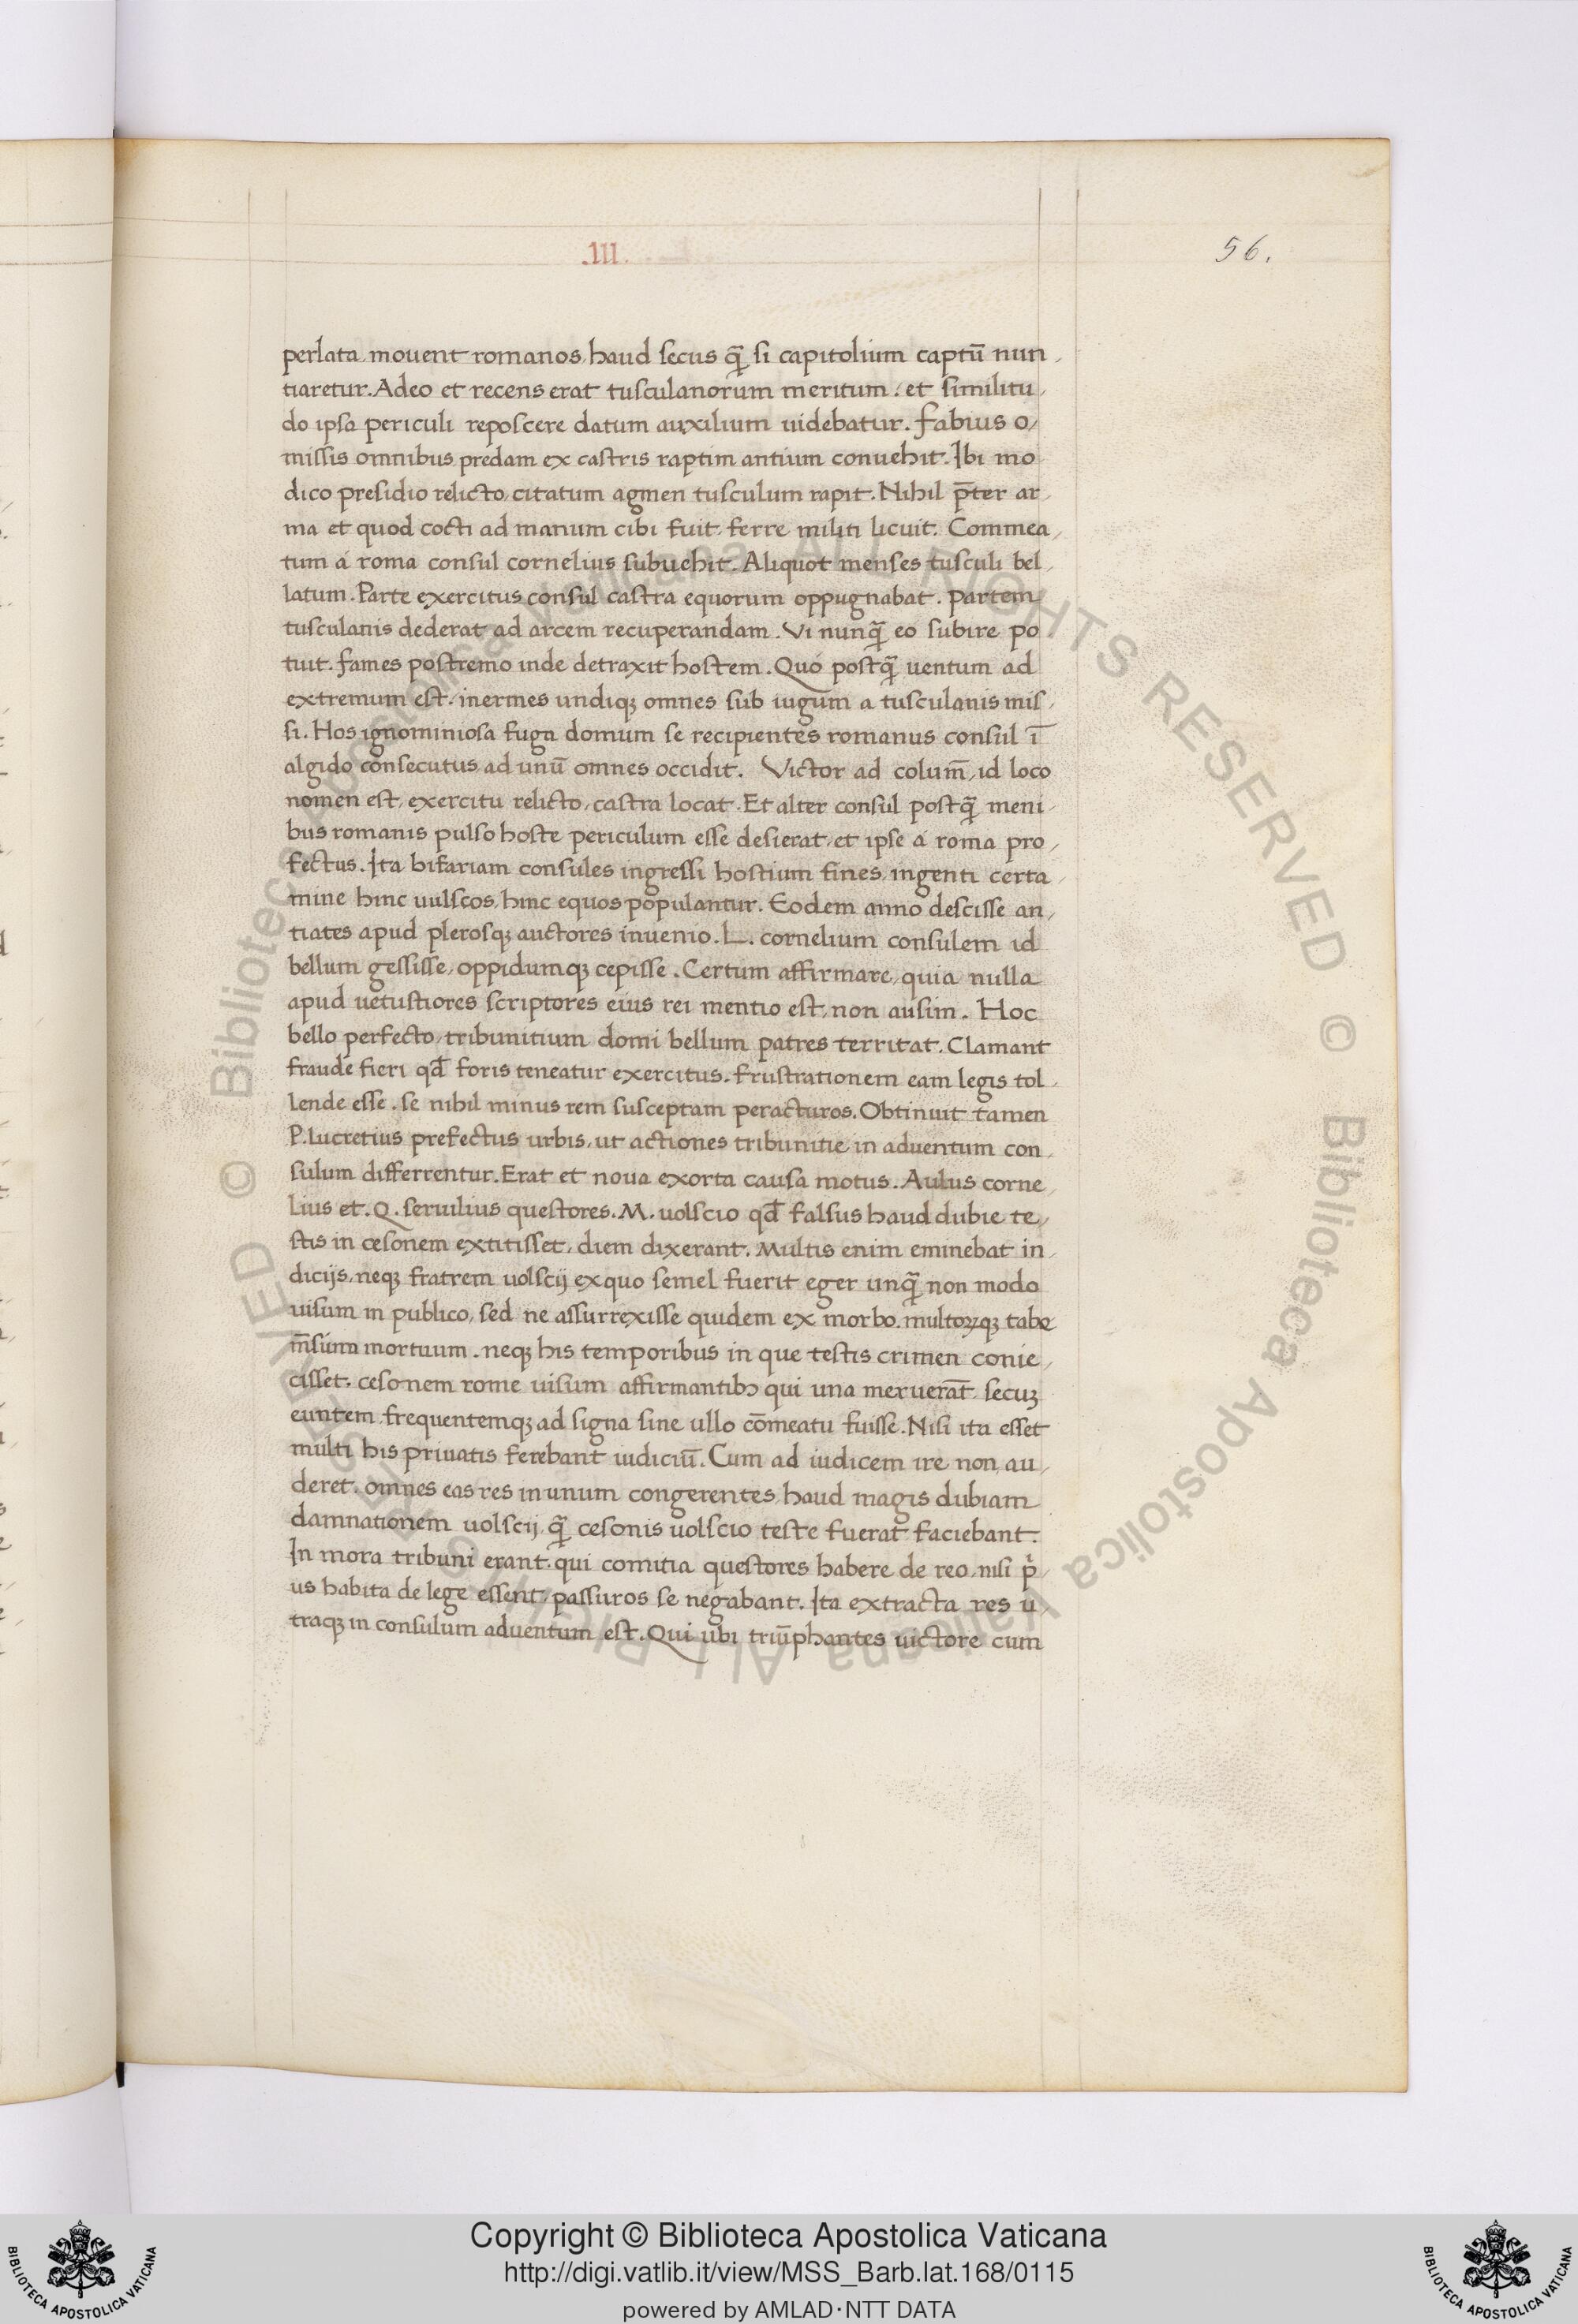 .III.
56.
perlata, mouent romanos, haud secus q̃ si capitolium captū nun,
tiaretur. Adeo et recens erat tusculanorum meritum: et similitu,
do ipsa periculi reposcere datum auxilium uidebatur. fabius o,
missis omnibus predam ex castris raptim antium conuehit. Ibi mo
dico presidio relicto, citatum agmen tusculum rapit. Nihil p̄ter ar,
ma et quod cocti ad manum cibi fuit ferre militi licuit. Commea,
tum á roma consul cornelius subuehit. Aliquot menses tusculi bel,
latum. Parte exercitus consul castra equorum oppugnabat. partem
tusculanis dederat ad arcem recuperandam. Vi nunq̃ eo subire po
tuit. fames postremo inde detraxit hostem. Quó postq̃ uentum ad
extremum est, inermes undiqȝ omnes sub iugum a tusculanis mis,
si. Hos ignominiosa fuga domum se recipientes romanus consul ī
algido consecutus ad unū omnes occidit. Victor ad colum̄, id loco
nomen est, exercitu relicto, castra locat. Et alter consul postq̃ meni,
bus romanis pulso hoste periculum esse desierat, et ipse á roma pro,
fectus. Ita bifariam consules ingressi hostium fines, ingenti certa,
mine hinc uulscos, hinc equos populantur. Eodem anno descisse an,
tiates apud plerosqȝ auctores inuenio. L. cornelium consulem id
bellum gessisse, oppidumqȝ cepisse. Certum affirmare, quia nulla
apud uetustiores scriptores eius rei mentio est, non ausim. Hoc
bello perfecto, tribunitium domi bellum patres territat. Clamant
fraude fieri qd̄ foris teneatur exercitus. frustrationem eam legis tol,
lende esse. se nihil minus rem susceptam peracturos. Obtinuit tamen
P. lucretius prefectus urbis, ut actiones tribunitie in aduentum con,
sulum differrentur. Erat et noua exorta causa motus. Aulus corne,
lius et. Q. seruilius questores. M. uolscio qd̄ falsus haud dubie te,
stis in cesonem extitisset, diem dixerant. Multis enim eminebat in,
dicijs, neqȝ fratrem uolscij ex quo semel fuerit eger unq̃ non modo
uisum in publico, sed ne assurrexisse quidem ex morbo. multoꝝqȝ tabe
m̄sium mortuum. neqȝ his temporibus in que testis crimen conie,
cisset. cesonem rome uisum affirmantibꝰ qui una meruerāt secuȝ
euntem frequentemqȝ ad signa sine ullo cōmeatu fuisse. Nisi ita esset
multi his priuatis ferebant iudiciū. Cum ad iudicem ire non au,
deret. omnes eas res in unum congerentes haud magis dubiam
damnationem uolscij q̃ cesonis uolscio teste fuerat faciebant.
In mora tribuni erant. qui comitia questores habere de reo, nisi p̓,
us habita de lege essent, passuros se negabant. Ita extracta res u,
traqȝ in consulum aduentum est. Qui ubi triūphantes uictore cum
© Biblioteca Apostolica Vaticana ALL RIGHTS RESERVED © Biblioteca Apostolica Vaticana ALL RIGHTS RESERVED
BIBLIOTECA APOSTOLICA VATICANA
Copyright © Biblioteca Apostolica Vaticana
http://digi.vatlib.it/view/MSS_Barb.lat.168/0115
powered by AMLAD·NTT DATA
BIBLIOTECA APOSTOLICA VATICANA